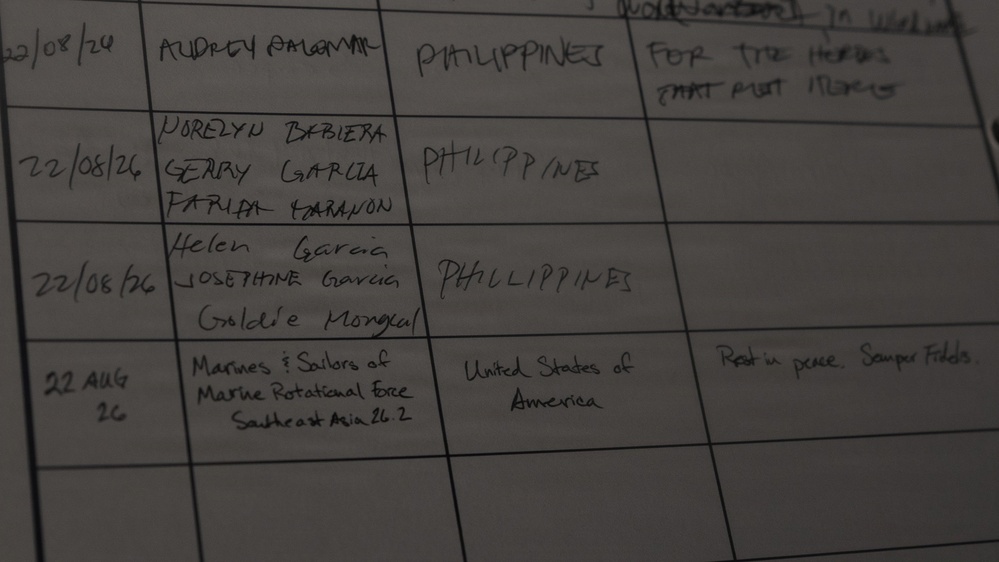 in
22/08/26 AUDREY PALOMAR PHILIPPINES FOR THE HEROES
THAT
NORELYN BABIERA
22/08/26 GERRY GARCIA PHILIPPINES
FARIDA
Helen Garcia
22/08/26 JOSEPHINE Garcia PHILLIPPINES
Goldie Mongcal
22 AUG Marines & Sailors of United States of Rest in peace. Semper Fidelis.
26 Marine Rotational Force America
Southeast Asia 26.2